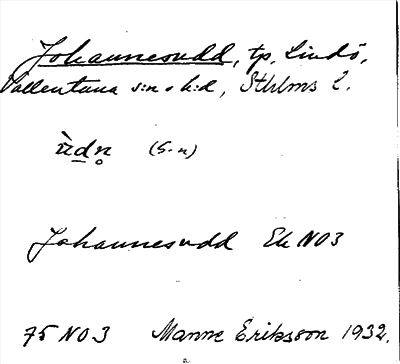 Johannesudd, tp, Lindö,
Vallentuna s:n o h:d, Sthlms l.
ùdn̥ (S-n)
Johannesudd Ek NO3
75 NO3 Manne Eriksson 1932.